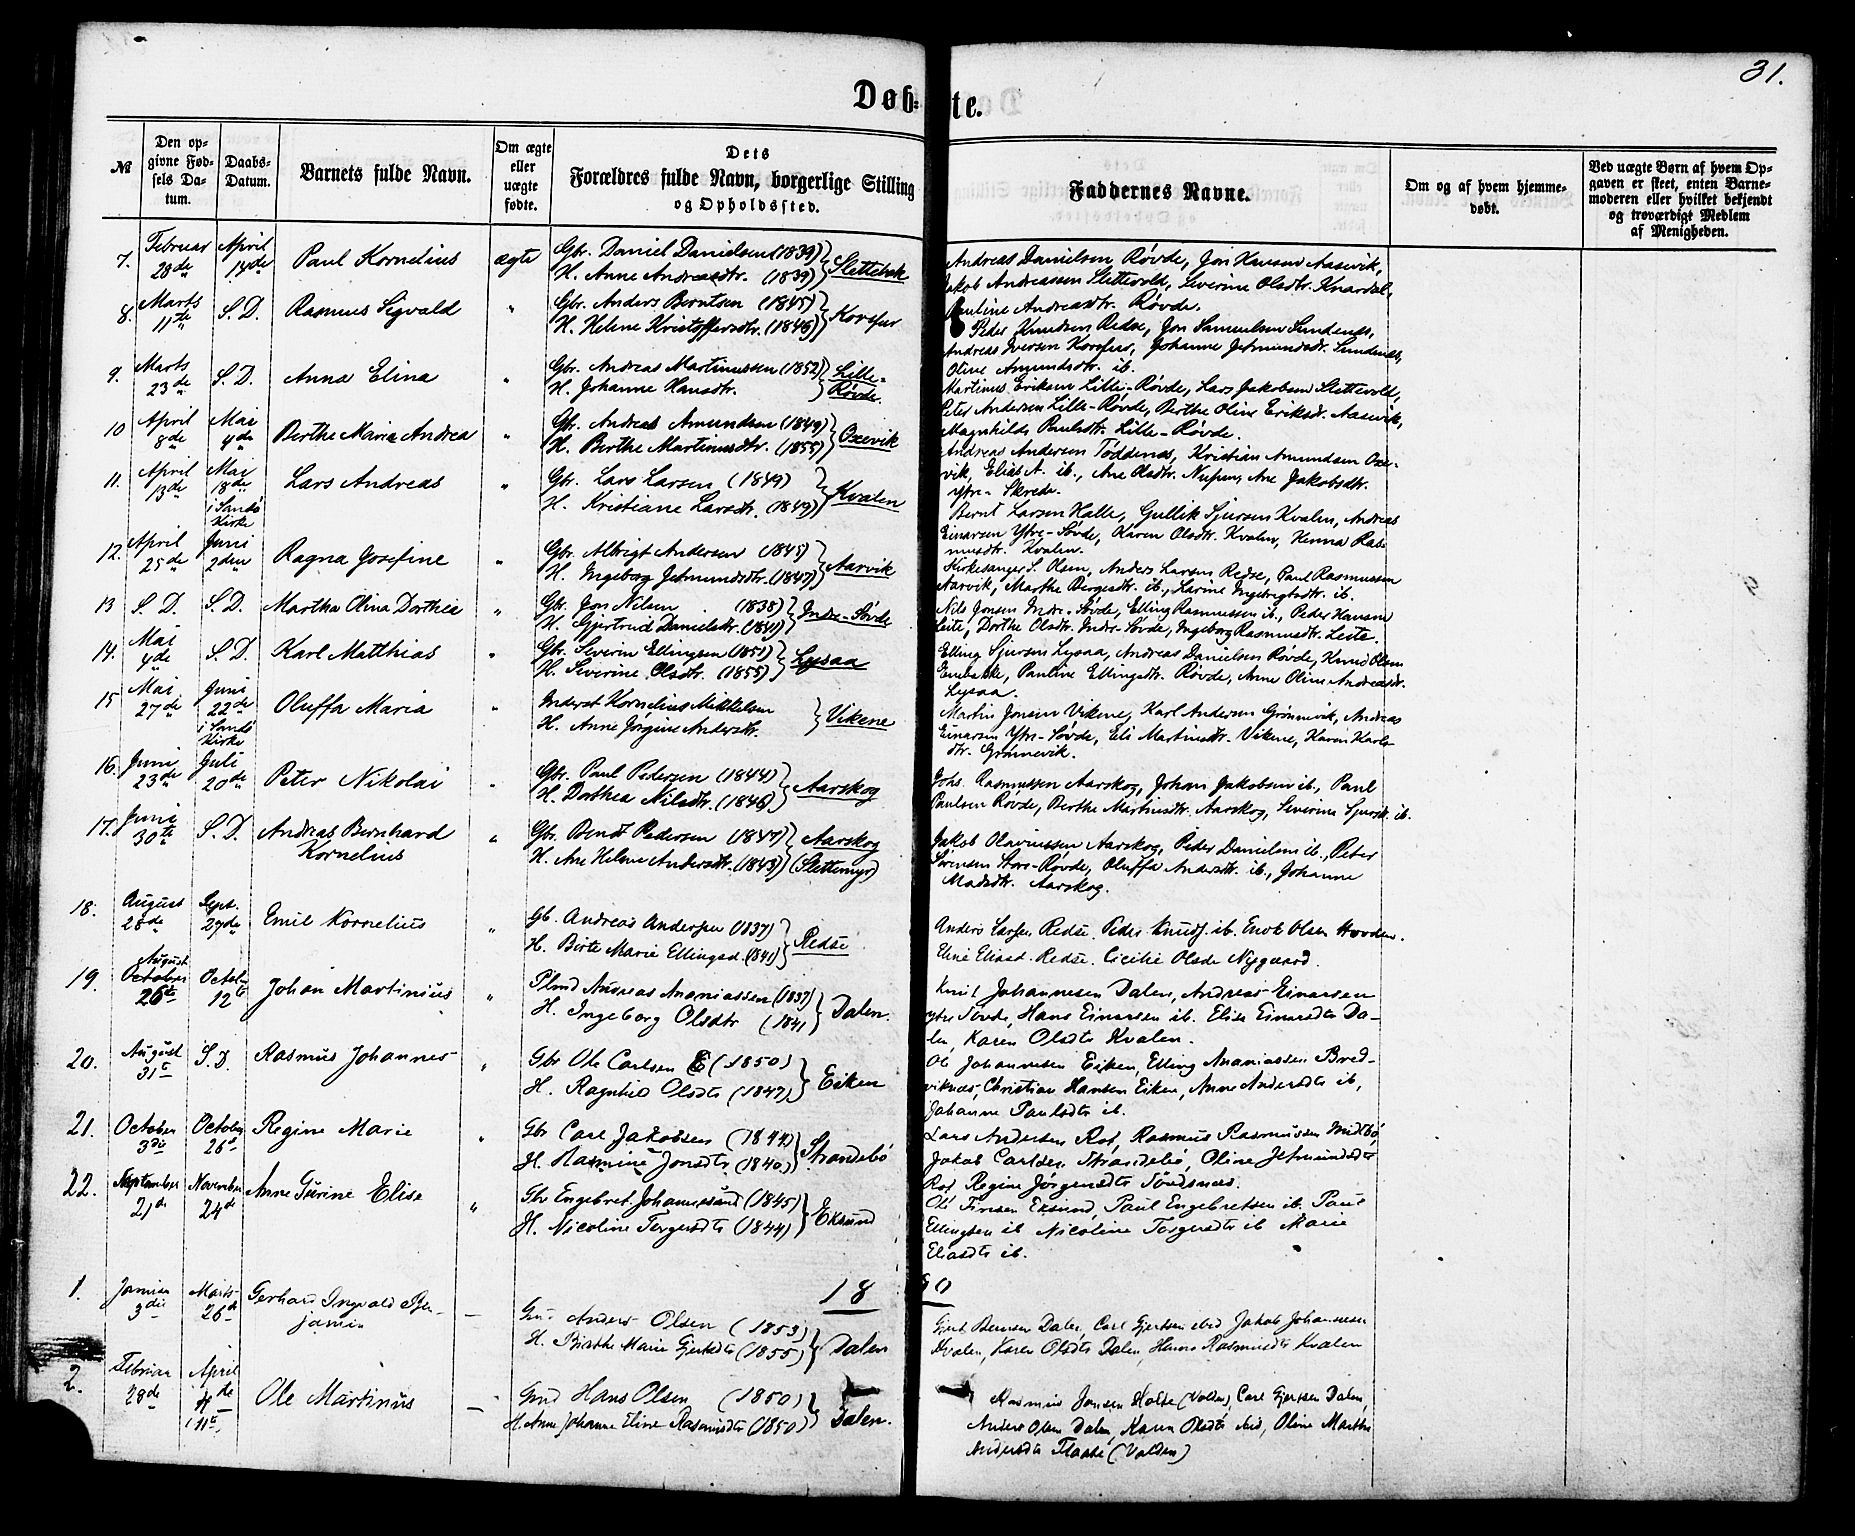 31.
Døb=
te.
№
Den op-
givne Fød-
sels Da-
tum.
Daabs-
Datum.
Barnets fulde Navn.
Om ægte
eller
uægte
fødte.
Dets
Forældres fulde Navn, borgerlige Stilling
og Opholdssted.
Faddernes Navne.
Om og af hvem hjemme-
døbt.
Ved uægte Børn af hvem Op-
gaven er skeet, enten Barne-
moderen eller hvilket bekjendt
og troværdigt Medlem
af Menigheden.
7. Februar 28de April 14de Paul Kornelius ægte Gbr. Daniel Danielsen (1839)
H. Anne Andreasdtr. (1839) Slettebak
Andreas Danielsen Røvde, Jon Hansen Aasevik,
Jakob Andreassen Slettevold, Severine Olsdtr. Knardal,
Pauline Andreasdtr. Røvde.
8. Marts 11te S. D. Rasmus Sigvald " Gbr. Anders Berntsen (1845)
H. Helene Kristoffersdtr. (1846) Korsfur
Peder Knudsen Redse, Jon Samuelsen Sundenes,
Andreas Iversen Korsfur, Johanne Jetmundsdtr. Sundenes,
Oline Amundsdtr. ib.
9. Marts 23de S. D. Anna Elina " Gbr. Andreas Martinussen (1852)
H. Johanne Hansdtr. Lille-
Røvde.
Martinus Eriksen Lille-Røvde, Lars Jakobsen Slettevold,
Peter Andersen Lille-Røvde, Berthe Oline Eriksdtr. Aasevik,
Magnhilde Paulsdtr. Lille-Røvde.
10 April 8de Mai 4de Berthe Maria Andrea " Gbr. Andreas Amundsen (1849)
H. Berthe Martinusdtr. (1855) Oxevik
Andreas Andersen Tøddenes, Kristian Amundsen Oxe-
vik, Elias A. ib., Ane Olsdtr. Nupen, Ane Jakobsdtr.
Ytre-Skrede.
11. April 13de Mai 18de i Sands Kirke Lars Andreas " Gbr. Lars Larsen (1849)
H. Kristiane Larsdtr. (1849) Kvalen
Bernt Larsen Halle, Gullik Sjursen Kvalen, Andreas
Einarsen Ytre-Søvde, Karen Olsdtr. Kvalen, Henna Ras-
musdtr. Kvalen.
12. April 25de Juni 2den Ragna Josefine " Gbr. Albrigt Andersen (1845)
H. Ingeborg Jetmundsdtr. (1847) Aarvik
Kirkesanger S. Olsen, Anders Larsen Redse, Paul Rasmussen
Aarvik, Marthe Bergesdtr. ib., Larine Ingebrigtsdtr. ib.
13 S. D. S. D. Martha Olina Dorthea " Gbr. Jon Nilsen (1838)
H. Gjertrud Danielsdtr. (1841) Indre-Søvde
Nils Jonsen Indre-Søvde, Elling Rasmussen ib., Peder Hansen
Leite, Dorthe Olsdtr. Indre-Søvde, Ingeborg Rasmusdtr. Leite.
14. Mai 4de S. D. Karl Matthias " Gbr. Severin Ellingsen (1851)
H. Severine Olsdtr. (1855) Lysaa
Elling Sjursen Lysaa, Andreas Danielsen Røvde, Knud Olsen
Pauline Ellingsdtr. Røvde, Anne Oline Andreasdtr.
Lysaa.
15 Mai 27de Juni 22de i Sands Kirke Oluffa Maria " Inderst Kornelius Mikkelsen
H. Anne Jørgine Andersdtr. Vikene
Martin Jonsen Vikene, Karl Andersen Grønnevik, Andreas
Einarsen Ytre-Søvde, Eli Martinsdtr. Vikene, Karen Karls-
dtr. Grønnevik.
16. Juni 23de Juli 20de Peter Nikolai " Gbr. Paul Pedersen (1844)
H. Dorthea Nilsdtr. (1846) Aarskog
Johs. Rasmussen Aarskog, Johan Jakobsen ib., Paul
Paulsen Røvde, Berthe Martinsdtr. Aarskog, Severine Sjursdtr. ib.
17. Juni 30te S. D. Andreas Bernhard
Kornelius " Gbr. Bendt Pedersen (1847)
H. Ane Helene Andersdtr. (1843) Aarskog
(Slettemyr)
Jakob Olavinssen Aarskog, Peder Danielsen ib., Peter
Sørensen Store-Røvde, Oluffa Andersdtr. ib., Johanne
Madsdtr. Aarskog.
18. August 28de Sept. 27de Emil Kornelius " Gb. Andreas Andersen (1837)
H. Birte Marie Ellingsd. (1841) Redse
Anders Larsen Redse. Peder Knuds. ib. Enok Olsen
Eline Eliasd. Redse. Cicilie Olsdr Nygaard.
19. August October 26te Octob. 12te Johan Martinius " Plmd Andreas Ananiassen (1837)
H. Ingeborg Olsdtr (1841 Dalen.
Knut Johannesen Dalen, Andreas Einarsen
ytre Søvde, Hans Einarsen ib. Elise Einarsdtr Da-
len, Karen Olsdtr Kvalen.
20. August 31te S. D. Rasmus Johannes " Gbr Ole Carlsen E (1850)
H. Ragnhild Olsdtr (1847) Eiken
Ole Johannesen Eiken, Elling Ananiassen Bred-
viknes, Christian Hansen Eiken, Anne Andersdtr ib,
Johanne Paulsdtr ib.
21. October 3die October 26de Regine Marie " Gbr Carl Jakobsen (1844)
H. Rasmine Jonsdtr (1840) Strandebø
Lars Andersen Rot, Rasmus Rasmussen Midtbø,
Jakob Carlsen Strandebø, Oline Jetmundsdtr
Rot Regine Jørgensdtr Søvdsnes.
22. September 21de November 24de Anne Gurine Elise " Gbr Engebret Johannessen (1845)
H. Nicoline Torgersdtr (1844) Eksund
Ole Iversen Eksund, Paul Engebretsen ib. Paul
Ellingsen ib Nicoline Torgersdtr ib Marie
Eliasdtr ib.
1880
1. Januar 3die Marts 26de Gerhard Ingvald Ben-
jamin — Anders Olsen (1853)
H. Birthe Marie Gjertsdtr (1855) Dalen
Gjert Berntsen Dalen, Carl Gjertsen ibid Jakob Johannesen
Kvalen, Karen Olsdtr Dalen, Henna Rasmusdtr Kvalen
2. Februar 28de April Ole Martinus — Gmd Hans Olsen (1850)
H. Anne Johanne Eline Rasmusdtr (1850) Dalen.
Rasmus Jonsen Holte (Volden), Carl Gjertsen Dalen,
Anders Olsen Dalen, Karen Olsdtr ibid, Oline Marthe
Andersdtr Flaate (Volden)